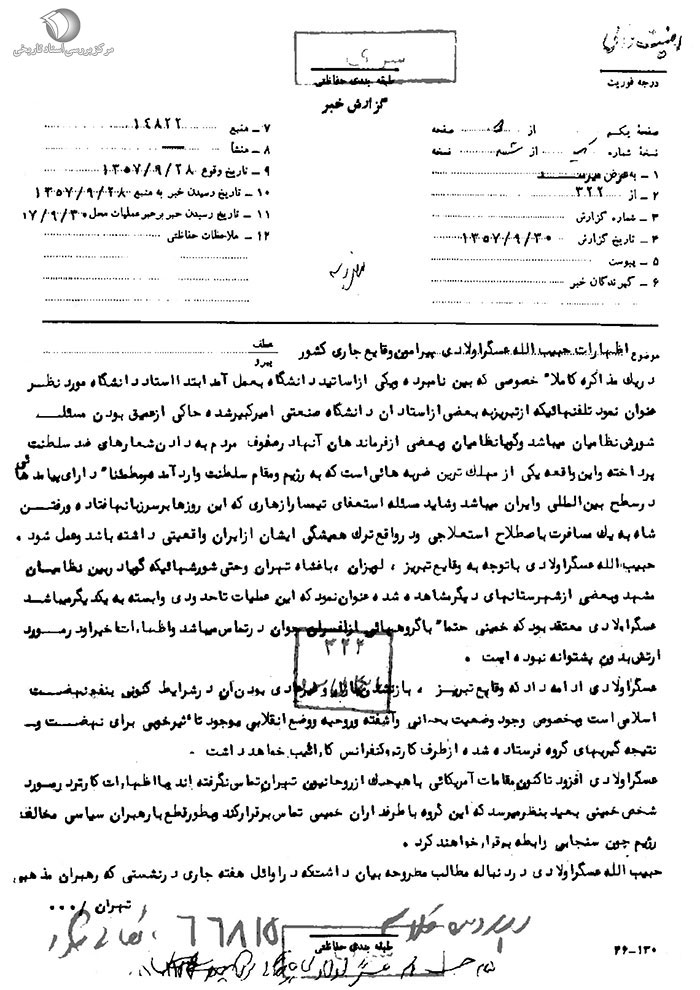 مرکز بررسی اسناد تاریخی
سری
طبقه بندی حفاظتی
گزارش خبر
درجه فوریت
صفحهٔ یکم از صفحه
نسخهٔ شماره یک از شش نسخه
۱ ــ به عرض میرسد
۲ ــ از ۳۲۲
۳ ــ شماره گزارش
۴ ــ تاریخ گزارش ۱۳۵۷/۹/۳۰
۵ ــ پیوست
۶ ــ گیرندگان خبر
۷ ــ منبع ۱۴۸۲۲
۸ ــ منشأ
۹ ــ تاریخ وقوع ۱۳۵۷/۹/۲۸
۱۰ ــ تاریخ رسیدن خبر به منبع ۱۳۵۷/۹/۲۸
۱۱ ــ تاریخ رسیدن خبر برهبر عملیات محل ۱۷/۹/۳۰
۱۲ ــ ملاحظات حفاظتی
موضوع اظهارات حبیب الله عسگراولادی پیرامون وقایع جاری کشور عطف پیرو
در یک مذاکره کاملا" خصوصی که بین نامبرده ویکی ازاساتید دانشگاه بعمل آمد ابتدا استاد دانشگاه مورد نظر
عنوان نمود تلفنهائیکه ازتبریز به بعضی ازاستادان دانشگاه صنعتی امیرکبیر شده حاکی ازعمیق بودن مسئله
شورش نظامیان میباشد وگویا نظامیان وبعضی ازفرماندهان آنها در صفوف مردم به دادن شعارهای ضد سلطنت
پرداخته واین واقعه یکی از مهلک ترین ضربه هائی است که به رژیم ومقام سلطنت وارد آمده ومطمئنا" دارای پیامدهائی
در سطح بین المللی وایران میباشد وشاید مسئله استعفای تیمسار ازهاری که این روزها برسرزبانها افتاده ورفتن
شاه به یک مسافرت باصطلاح استعلاجی ودر واقع ترک همیشگی ایشان ازایران واقعیتی داشته باشد وعمل شود .
حبیب الله عسگراولادی باتوجه به وقایع تبریز ، لویزان ، باغشاه تهران وحتی شورشهائیکه گویا در بین نظامیان
مشهد وبعضی ازشهرستانهای دیگر مشاهده شده عنوان نمود که این عملیات تاحدودی وابسته به یکدیگر میباشد
عسگراولادی معتقد بود که خمینی حتما" با گروههائی ازافسران جوان در تماس میباشد واظهارات اخیر او در مورد
ارتش بدون پشتوانه نبوده است .
۳۲۲
عسگراولادی ادامه داد که وقایع تبریز ، باز نشدن بازار و غیرعادی بودن آن در شرایط کنونی بنفع نهضت
اسلامی است وبخصوص وجود وضعیت بحرانی وآشفته وروحیه ووضع انقلابی موجود تأثیر خوبی برای نهضت و
نتیجه گیریهای گروه فرستاده شده ازطرف کارتر وکنفرانس خواهد داشت .
عسگراولادی افزود تاکنون مقامات آمریکائی با هیچیک ازروحانیون تهران تماس نگرفته اند وبا اظهارات کارتر در مورد
شخص خمینی بعید بنظر میرسد که این گروه با طرفداران خمینی تماس برقرار کند وبطور قطع با رهبران سیاسی مخالف
رژیم چون سنجابی رابطه برقرار خواهند کرد .
حبیب الله عسگراولادی در دنباله مطالب مطروحه بیان داشت که در اوائل هفته جاری در نشستی که رهبران مذهبی
تهران /...
۶۶۸۱۵
طبقه بندی حفاظتی
۲۶-۱۳۰